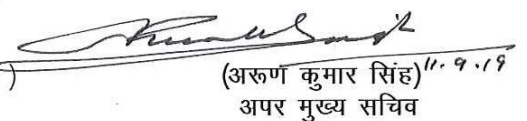 )
(अरूण कुमार सिंह) 11.9.19
अपर मुख्य सचिव